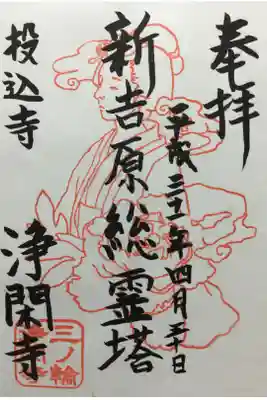 奉拝
平成三十一年四月三十日
新吉原総霊塔
投込寺
浄閑寺
三ノ輪